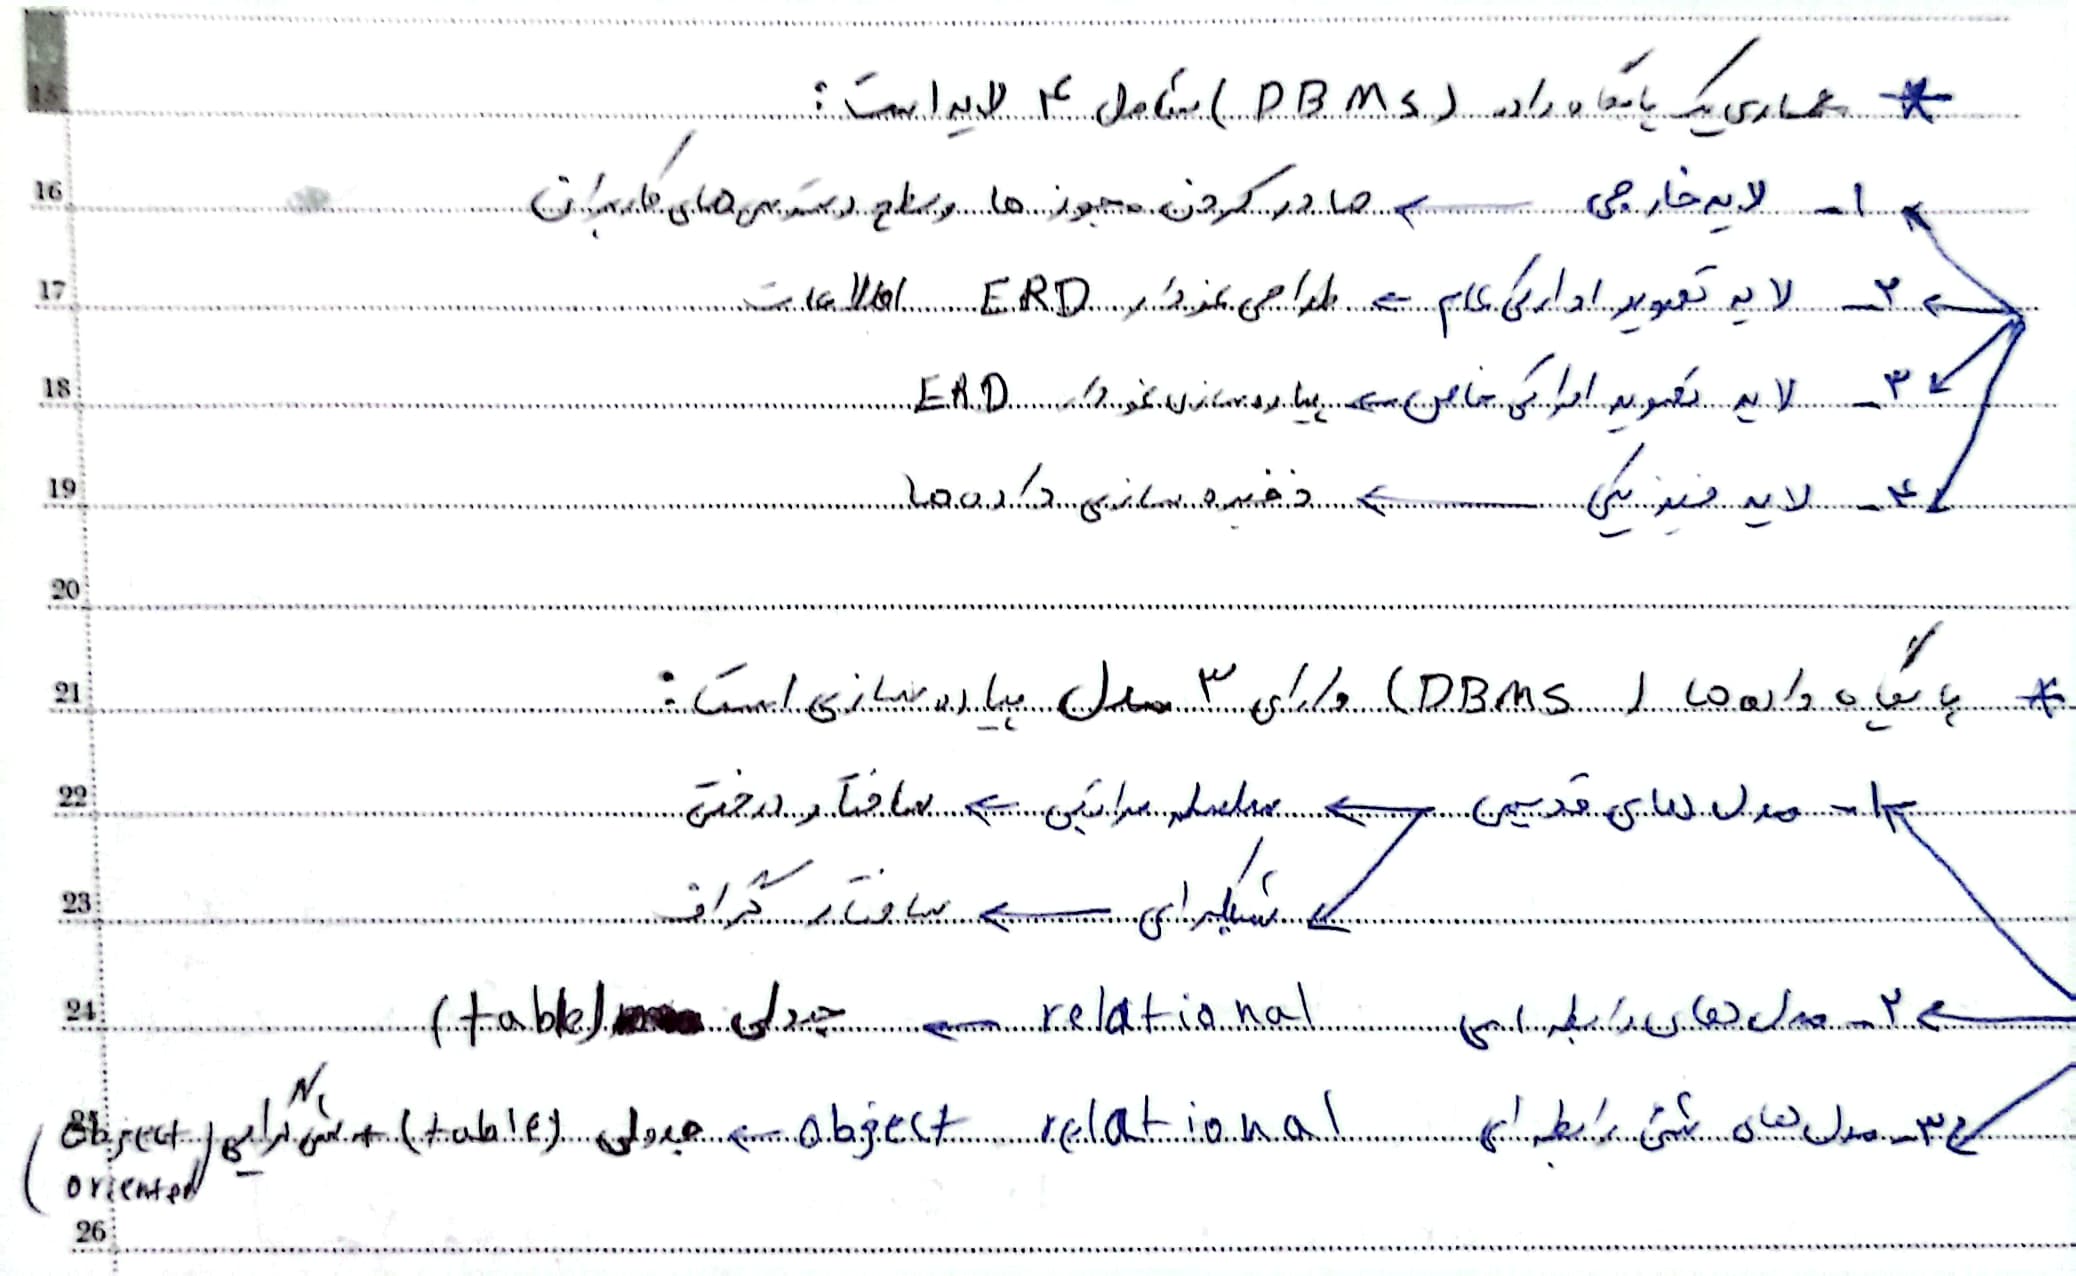 15
* معماری یک پایگاه داده (DBMS) شامل ۴ لایه است:
16 ۱- لایه خارجی ← صادر کردن مجوز ها و سطح دسترسی های کاربران
17 ۲- لایه تصویر ادراکی عام ← طراحی نمودار ERD اطلاعات
18 ۳- لایه تصویر ادراکی خاص ← پیاده سازی نمودار ERD
19 ۴- لایه فیزیکی ← ذخیره سازی داده ها
20
21 * پایگاه داده ها (DBMS) دارای ۳ مدل پیاده سازی است:
22 ۱- مدل های قدیمی ← سلسله مراتبی ← ساختار درختی
23 شبکه ای ← ساختار گراف
24 ۲- مدل های رابطه ای relational ← جدولی (table)
25 ۳- مدل های شئ رابطه ای object relational ← جدولی (table) + شئ گرایی (object
oriented)
26